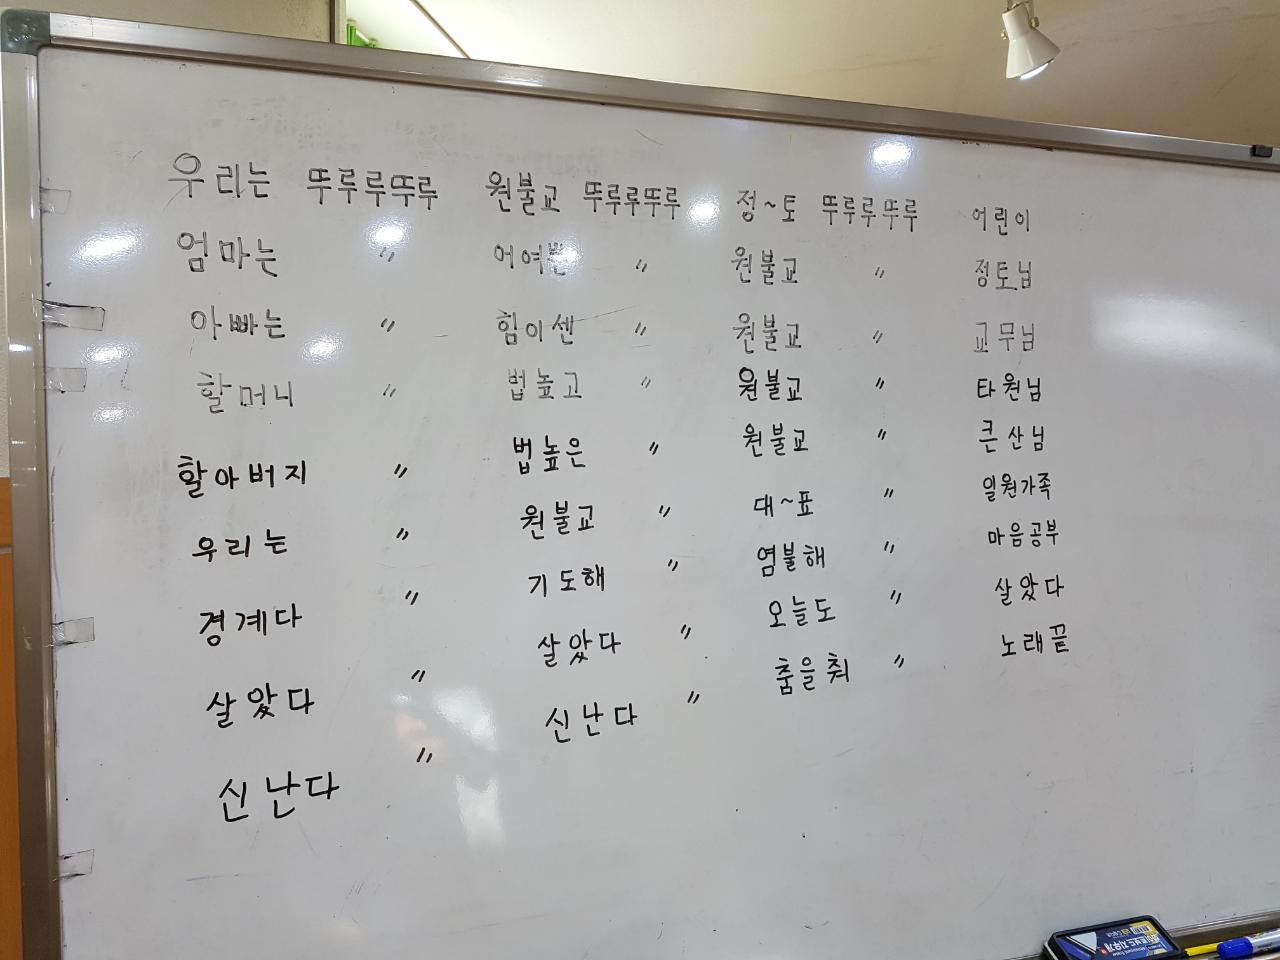 우리는 뚜루루뚜루 원불교 뚜루루뚜루 정~토 뚜루루뚜루 어린이
엄마는 〃 어여쁜 〃 원불교 〃 정토님
아빠는 〃 힘이센 〃 원불교 〃 교무님
할머니 〃 법높고 〃 원불교 〃 타원님
할아버지 〃 법높은 〃 원불교 〃 큰산님
우리는 〃 원불교 〃 대~표 〃 일원가족
경계다 〃 기도해 〃 염불해 〃 마음공부
살았다 〃 살았다 〃 오늘도 〃 살았다
신난다 〃 신난다 〃 춤을춰 〃 노래끝